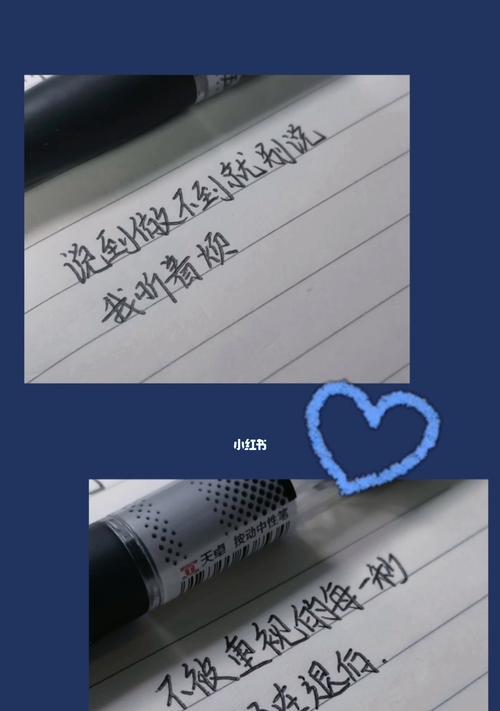 说到做不到就别说
我听着烦
小红书
天卓 按动中性笔
不被重视的每一秒
在退后.